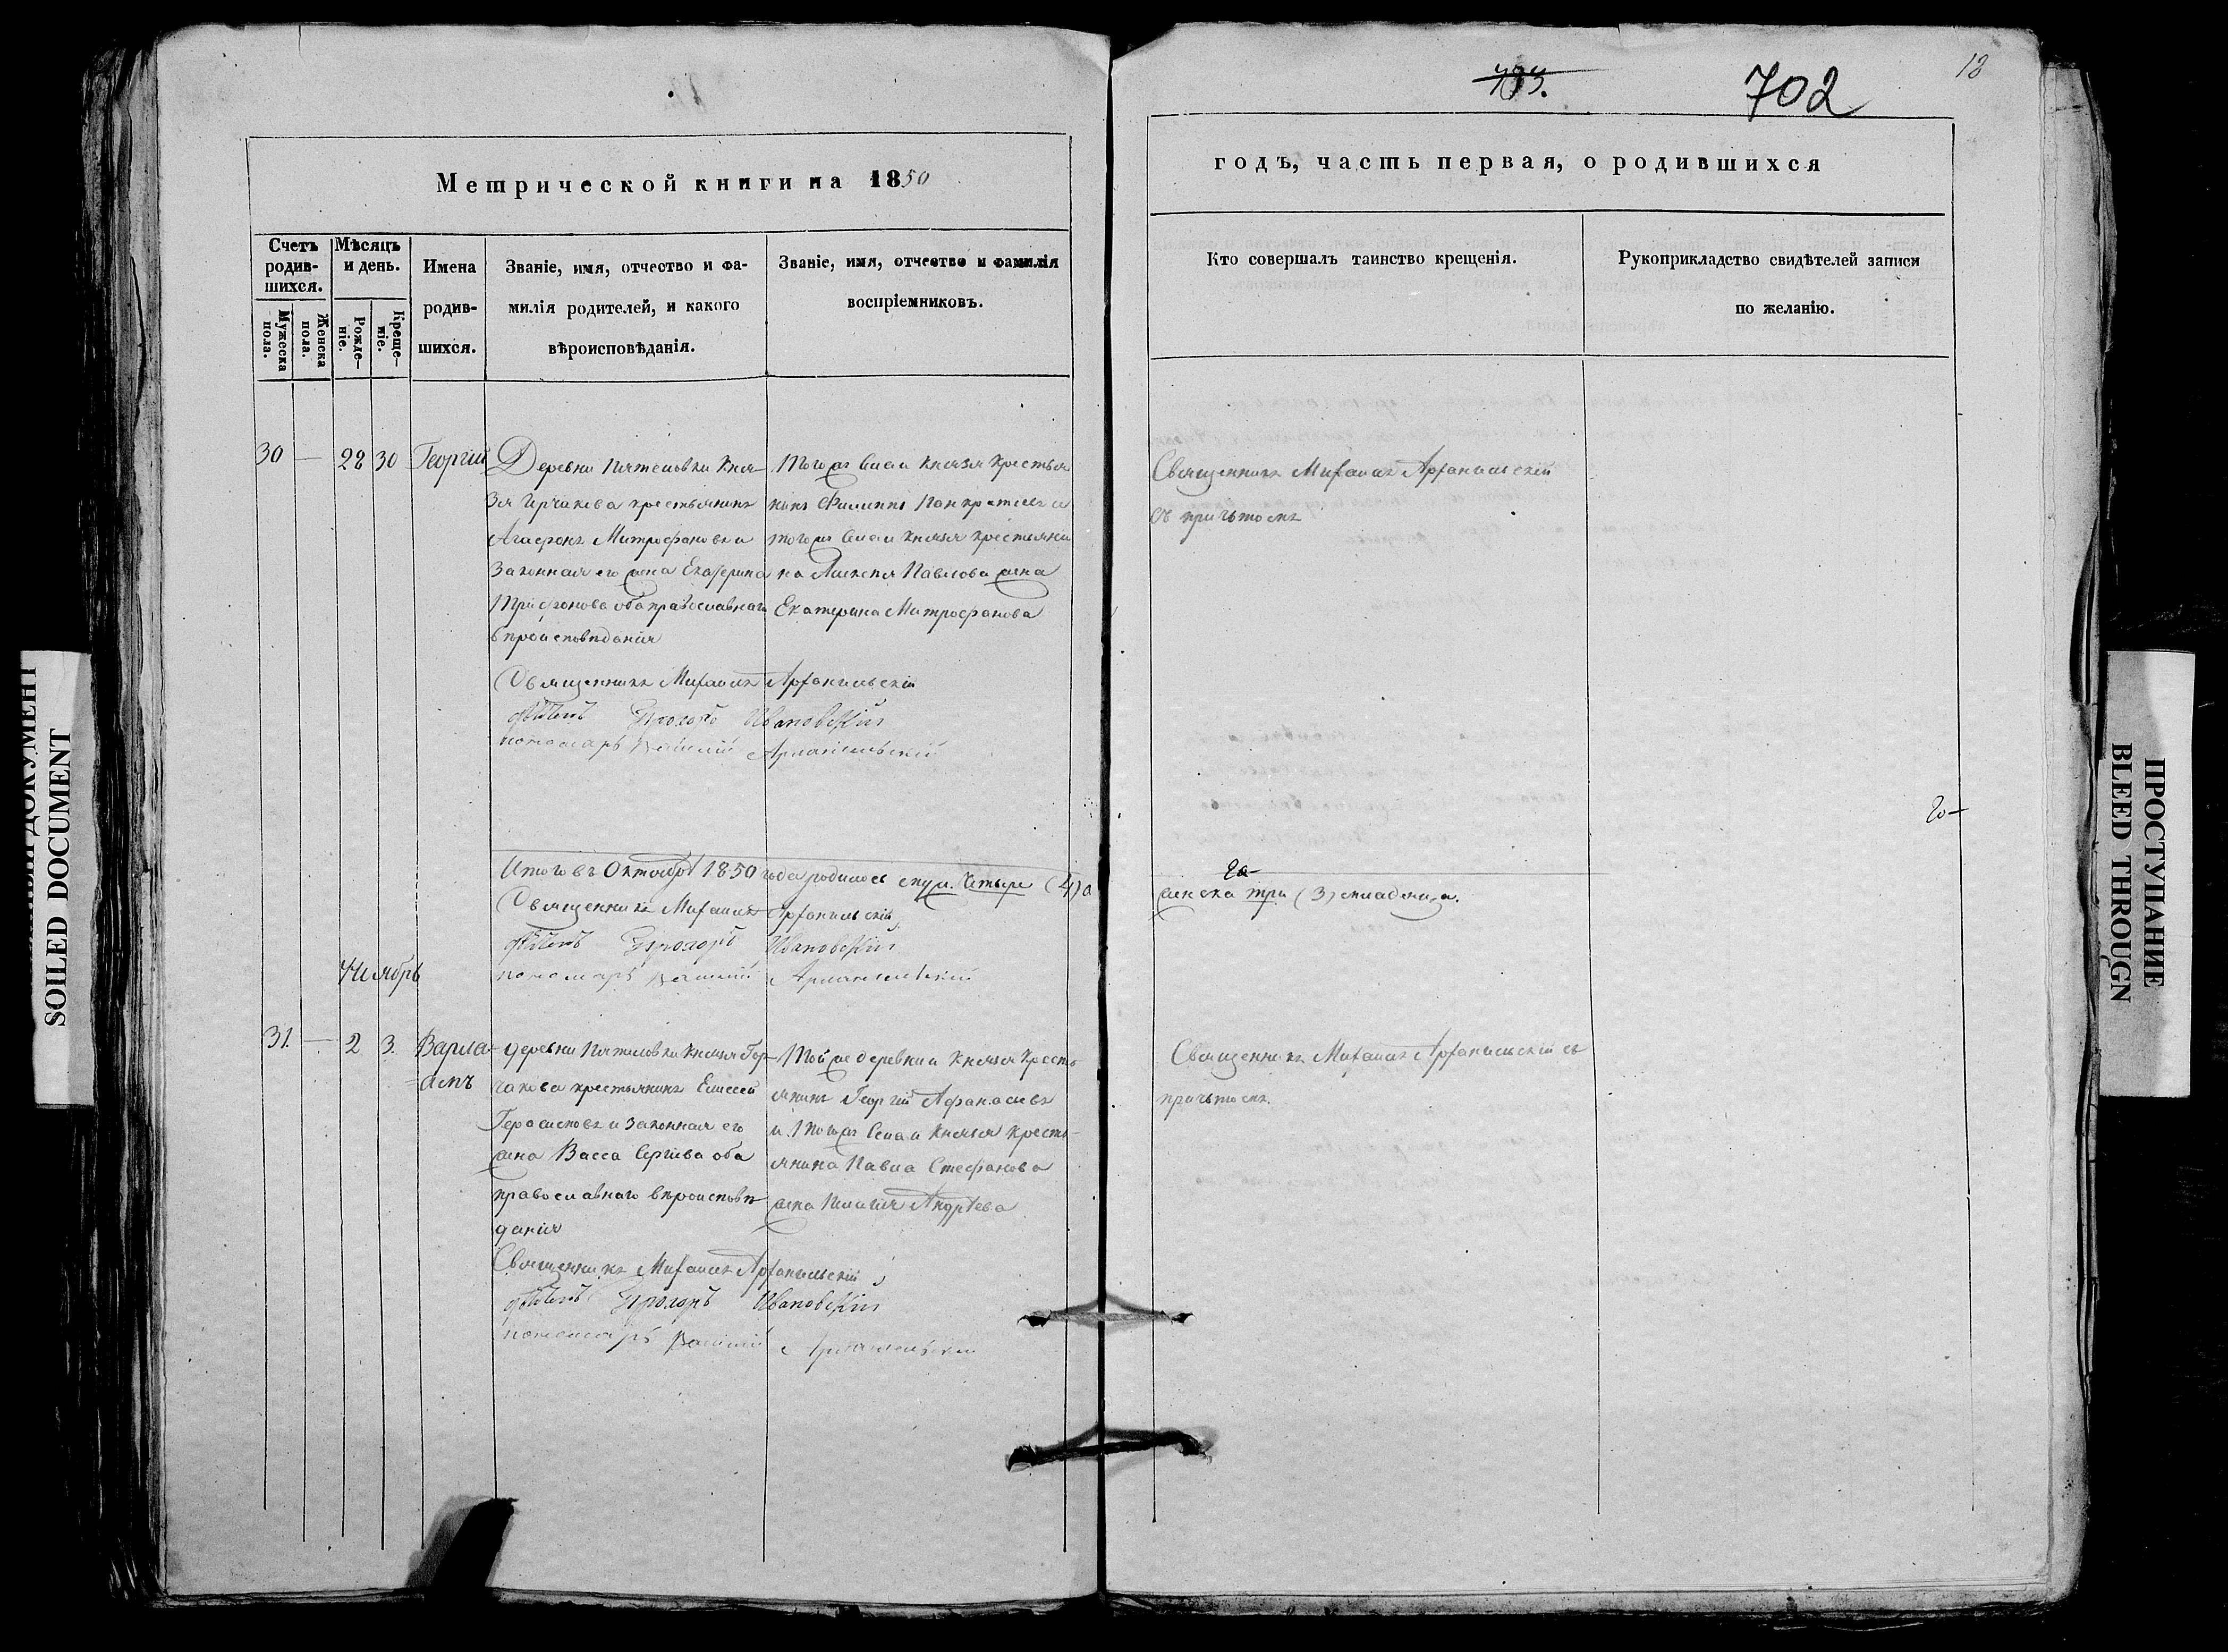 733.
702
18
Метрической книги на 1850
годъ, часть первая, о родившихся
Счетъ родив-шихся.
Мужеска пола.
Женска пола.
Мѣсяцъ и день.
Рожде-ніе.
Креще-ніе.
Имена
родив-
шихся.
Званіе, имя, отчество и фа-
милія родителей, и какого
вѣроисповѣданія.
Званіе, имя, отчество и фамилія
воспріемниковъ.
Кто совершалъ таинство крещенія.
Рукоприкладство свидѣтелей записи
по желанію.
30 — 28 30 Георгій
Деревни Кня-
зя Горчакова крестьянинъ
Агафонъ Митрофановъ и
законная его жена Екаѳерина
Трифонова оба православнаго
вѣроисповѣданія
Тогожъ Села Князя крестья
нинъ Филиппъ Панкратьевъ и
тогожъ Села Князя крестьяни
на Алексѣя Павлова жена
Екатерина Митрофанова
Священникъ Михаилъ Архангельскій
съ причтомъ
Священникъ Михаилъ Архангельскій
Прохоръ Ивановскій
пономарь Василій Архангельскій
Итого въ Октябрѣ 1850 года родилось муж. Четыре (4) а
женска три (3) младенца.
Священникъ Михаилъ Архангельскій
Прохоръ Ивановскій
пономарь Василій Архангельскій
Ноябрь
31. — 2 3. Варла-
=амъ
Деревни Князя Гор-
чакова крестьянинъ Елисей
Герасимовъ и законная его
жена Васса Сергѣева оба
православнаго вѣроисповѣ
данія
Той же деревни и Князя Кресть
янинъ Георгій Афанасьевъ
и тогожъ Села и Князя кресть-
янина Павла Стефанова
жена Пелагія Андрѣева
Священникъ Михаилъ Архангельскій съ
причтомъ.
Священникъ Михаилъ Архангельскій
Прохоръ Ивановскій
пономарь Василій Архангельскій
SOILED DOCUMENT
ПРОСТУПАНИЕ
BLEED THROUGN